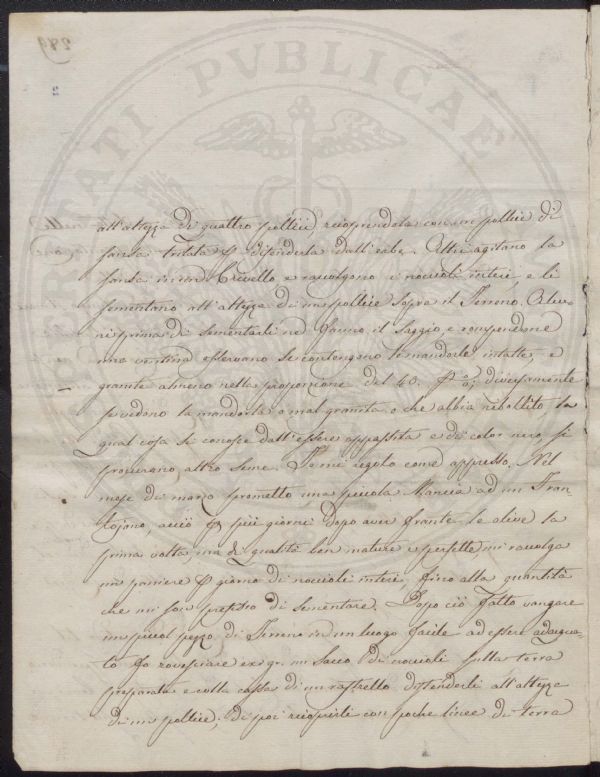 289
2
PVBLICAE
all'altezza di quattro pollici, ricoprendola con un pollice di
sansa tritata p difenderla dall'erbe. Altri agitano la
sansa in un Crivello e raccolgono i noccioli interi, e li
sementano all'altezza di un pollice sopra il Terreno. Alcu=
ni prima di sementarli ne fanno il Saggio, e rompendone
una ventina osservano se contengono le mandorle intatte, e
granite almeno nella proporzione del 40. P %; diversamente
se vedono la mandorla o mal granita, o che abbia ribollito la
qual cosa si conosce dall'essere appassita e di color nero, si
procurano altro seme. Io mi regolo come appresso. Nel
mese di marzo prometto una piccola Mancia ad un Fran=
tojano, acciò p più giorni dopo aver frante le olive la
prima volta, ma di qualità ben mature e perfette, mi raccolga
un paniere p giorno di noccioli interi, fino alla quantità
che mi son prefisso di sementare. Dopo ciò fatto vangare
un piccol pezzo di Terreno in un luogo facile ad essere adacqua=
to fo rovesciare ex gr. un Sacco di noccioli sulla terra
preparata e colla costa di un rastrello distenderli all'altezza
di un pollice; di poi ricoprirli con poche linee di terra